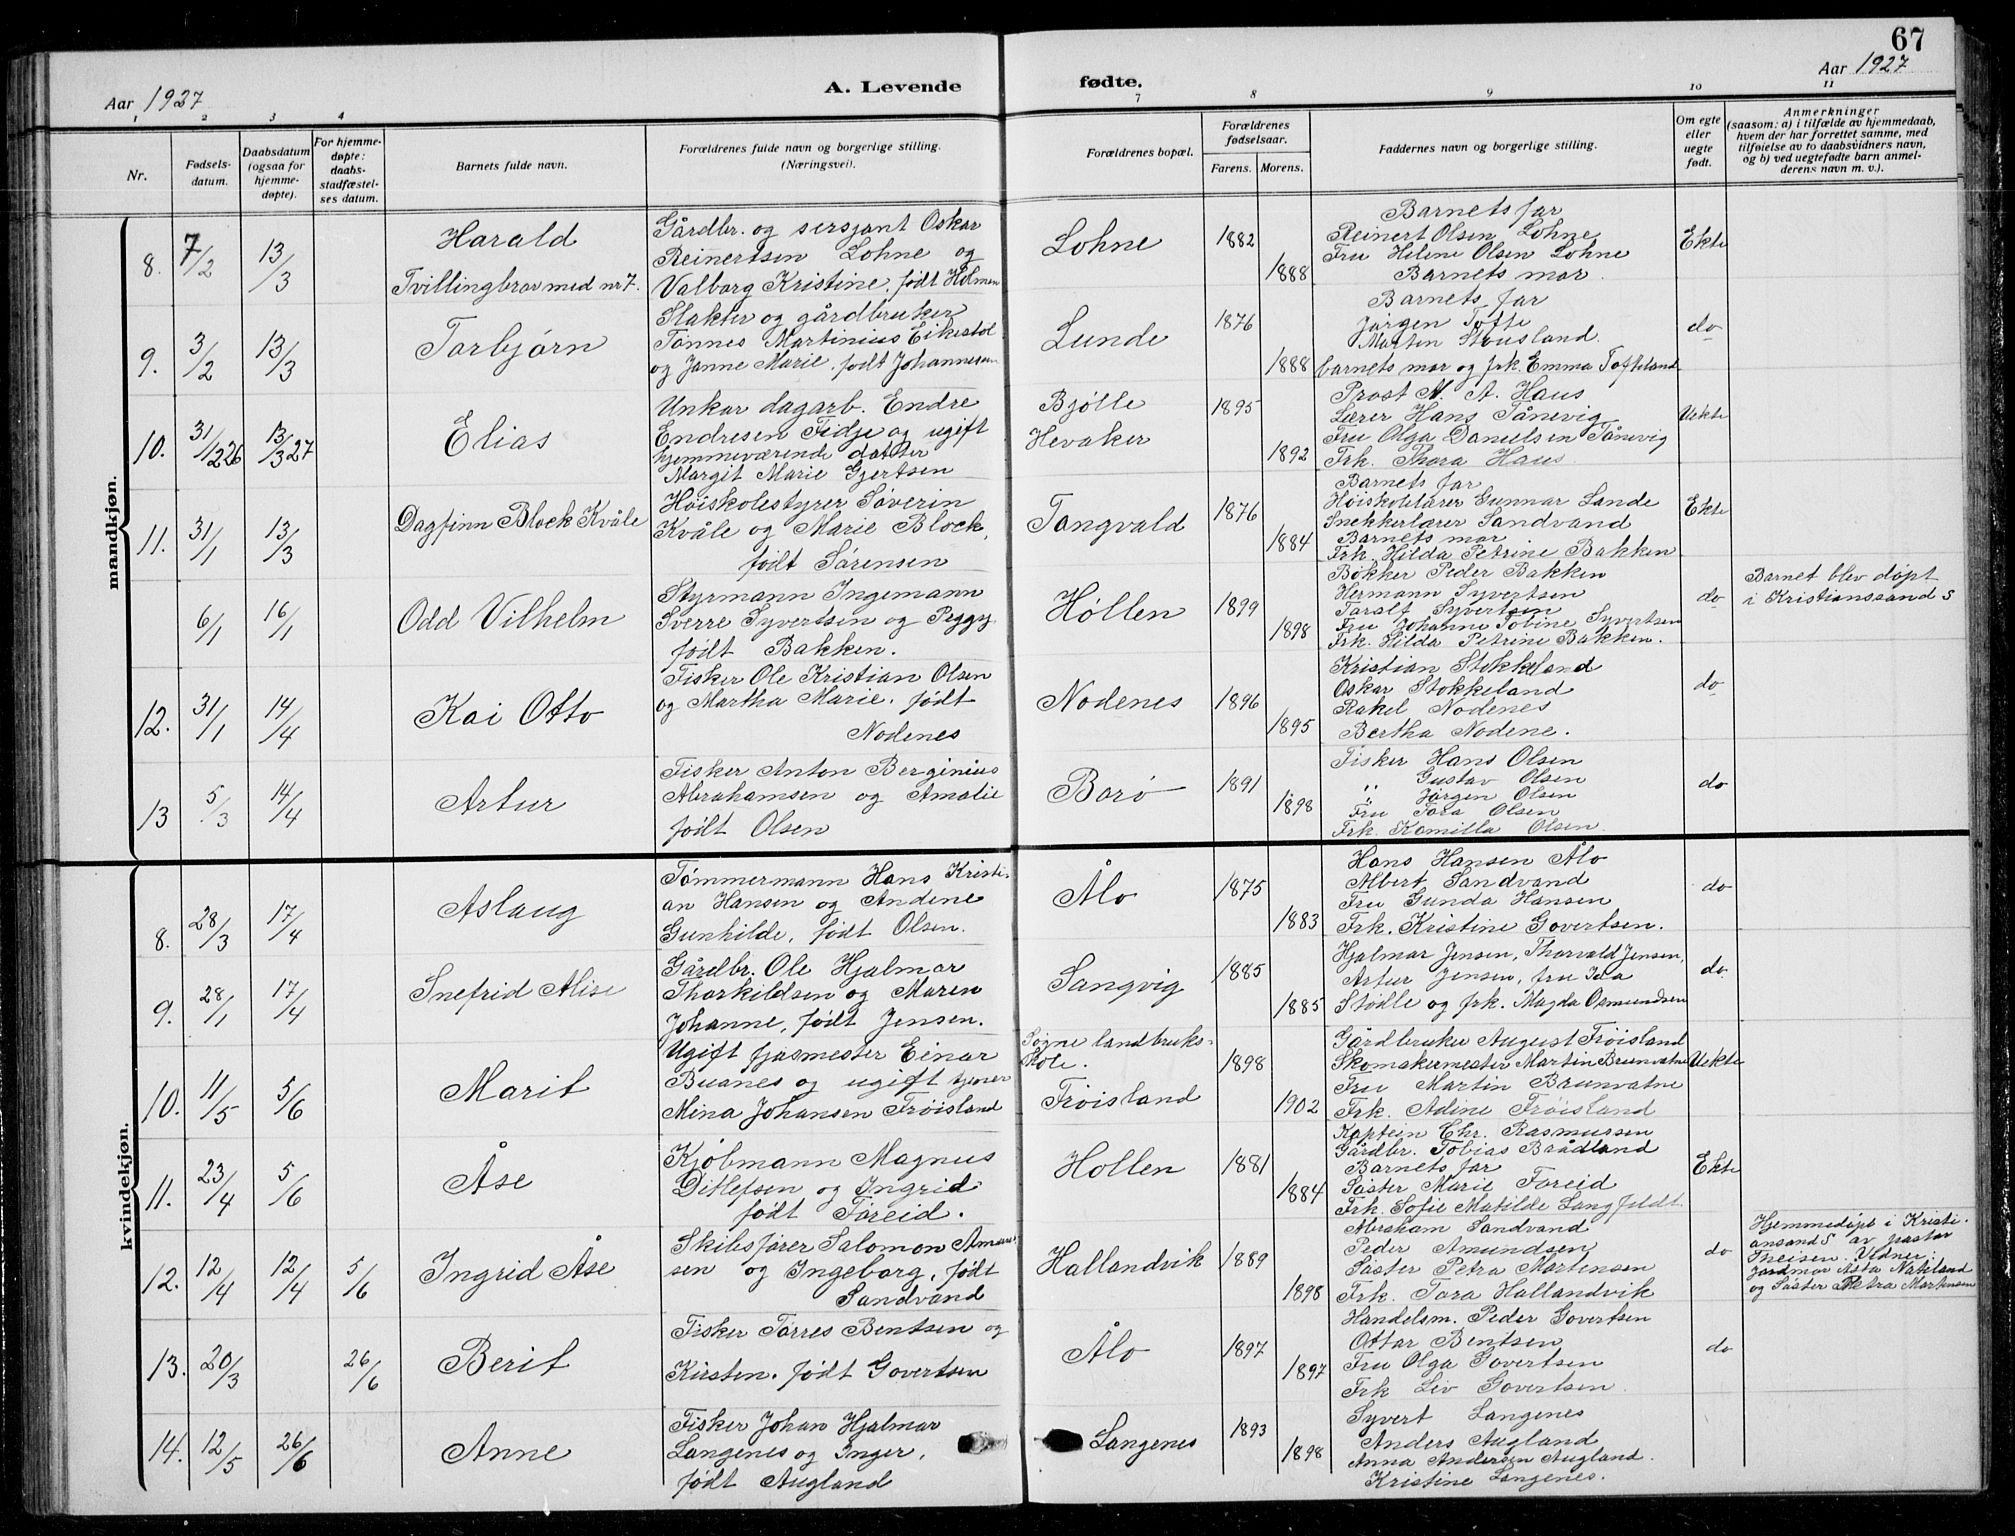 67
Aar 1927
A. Levende
fødte.
Aar 1927
1 2 3 4
7 8 9 10 11
Nr.
Fødsels-
datum.
Daabsdatum
(ogsaa for
hjemme-
døpte).
For hjemme-
døpte:
daabs-
stadfæstel-
ses datum.
Barnets fulde navn.
Forældrenes fulde navn og borgerlige stilling.
(Næringsvei).
Forældrenes bopæl.
Forældrenes
fødselsaar.
Farens. Morens.
Faddernes navn og borgerlige stilling.
Om egte
eller
uegte
født.
Anmerkninger
(saasom: a) i tilfælde av hjemmedaab,
hvem der har forrettet samme, med
tilføielse av to daabsvidners navn,
og b) ved uegtefødte barn anmel-
derens navn m. v.).
mandkjøn.
8. 7/2 13/3
Harald
Tvillingbror med nr 7.
Gårdbr. og sersjant Oskar
Reinertsen Lohne og
Valborg Kristine, født Holmen
Lohne
1882
1888
Barnets far
Reinert Olsen Lohne
Fru Helene Olsen Lohne
Barnets mor.
Ekte
9. 3/2 13/3
Torbjørn
Slakter og gårdbruker
Tønnes Martinius Eikestøl
og Janne Marie, født Johannesen
Lunde
1876
1888
Barnets far
Jørgen Tofte
Morten Stousland.
barnets mor og frk. Emma Tofteland
do
10. 31/12 26 13/3 27
Elias
Unkar dagarb. Endre
Endresen Fidje og ugift
hjemmeværende datter
Margit Marie Gjertsen
Bjølle
Hevaker
1895
1892
Prost N. A. Haus
Lærer Hans Tånevig
Fru Olga Danielsen Tånevig
Frk. Thora Haus
Uekte
11. 31/1 13/3
Dagfinn Block Kvåle
Høiskolestyrer Søverin
Kvåle og Marie Block,
født Sørensen
Tangvald
1876
1884
Barnets far
Høiskolelærer Gunnar Lande
Snekkerlærer Sandvand
Barnets mor
Frk. Hilda Petrine Bakken
Ekte
6/1 16/1
Odd Vilhelm
Styrmann Ingemann
Sverre Syvertsen og Peggy
født Bakken.
Høllen
1899
1898
Bøkker Peder Bakken
Hermann Syvertsen
Taralf Syvertsen
Fru Johanne Tobine Syvertsen
Frk. Hilda Petrine Bakken.
do
Barnet blev døpt
i Kristianssand S
12. 31/1 14/4
Kai Otto
Fisker Ole Kristian Olsen
og Martha Marie, født
Nodenes
Nodenes
1896
1895
Kristian Stokkeland
Oskar Stokkeland
Rakel Nodenes
Bertha Nodene.
do
13 5/3 14/4
Artur
Fisker Anton Berginius
Abrahamsen og Amalie
født Olsen
Borø
1891
1898
Fisker Hans Olsen
Gustav Olsen
" Jørgen Olsen
Fru Tora Olsen
Frk. Kamilla Olsen.
do
kvindekjøn.
8. 28/3 17/4
Aslaug
Tømmermann Hans Kristi-
an Hansen og Andene
Gunhilde, født Olsen.
Ålo
1875
1883
Hans Hansen Ålo
Albert Sandvand
Fru Gunda Hansen
Frk. Kristine Govertsen.
do
9. 28/1 17/4
Snefrid Alise
Gårdbr. Ole Hjalmar
Thorkildsen og Maren
Johanne, født Jensen.
Langvig
1885
1885
Hjalmar Jensen, Thorvald Jensen,
Artur Jensen, fru Ida
Stølle og frk. Magda Osmundsen
do.
10. 11/5 5/6
Marit
Ugift fjøsmester Einar
Buanes og ugift tjener
Mina Johansen Frøisland
Søgne landbruks-
skole.
Frøisland
1898
1902
Gårdbruker August Frøisland
Skomakermester Martin Brunvatne
Fru Martin Brunvatne
Frk. Adine Frøisland
Uekte
11. 23/4 5/6
Åse
Kjøbmann Magnus
Ditlefsen og Ingrid
født Føreid.
Høllen
1881
1884
Kaptein Chr. Rasmussen
Gårdbr. Tobias Baadland
Barnets far
Søster Marie Føreid
Frk. Sofie Matilde Langfeldt.
Ekte
12. 12/4 12/4 5/6
Ingrid Åse
Skibsfører Salomon Amund-
sen og Ingeborg, født
Sandvand
Hallandvik
1889
1898
Abraham Sandvand
Peder Amundsen
Søster Petra Martensen
Frk. Tora Hallandvik
do
Hjemmedøpt i Kristi-
ansand S av pastor
Theisen. Vidner:
Jordmor Asta Nateland
og Søster Petra Martensen
13. 20/3 26/6
Berit
Fisker Tørres Bentsen og
Kirsten, født Govertsen
Ålo
1897
1897
Handelsm. Peder Govertsen
Ottar Bentsen
Fru Olga Govertsen
Frk Liv Govertsen.
do
14. 12/5 26/6
Anne
Fisker Johan Hjalmar
Langenes og Inger,
født Augland
Langenes
1893
1898
Syvert Langenes
Anders Augland
Anna Andersen Augland.
Kristine Langenes.